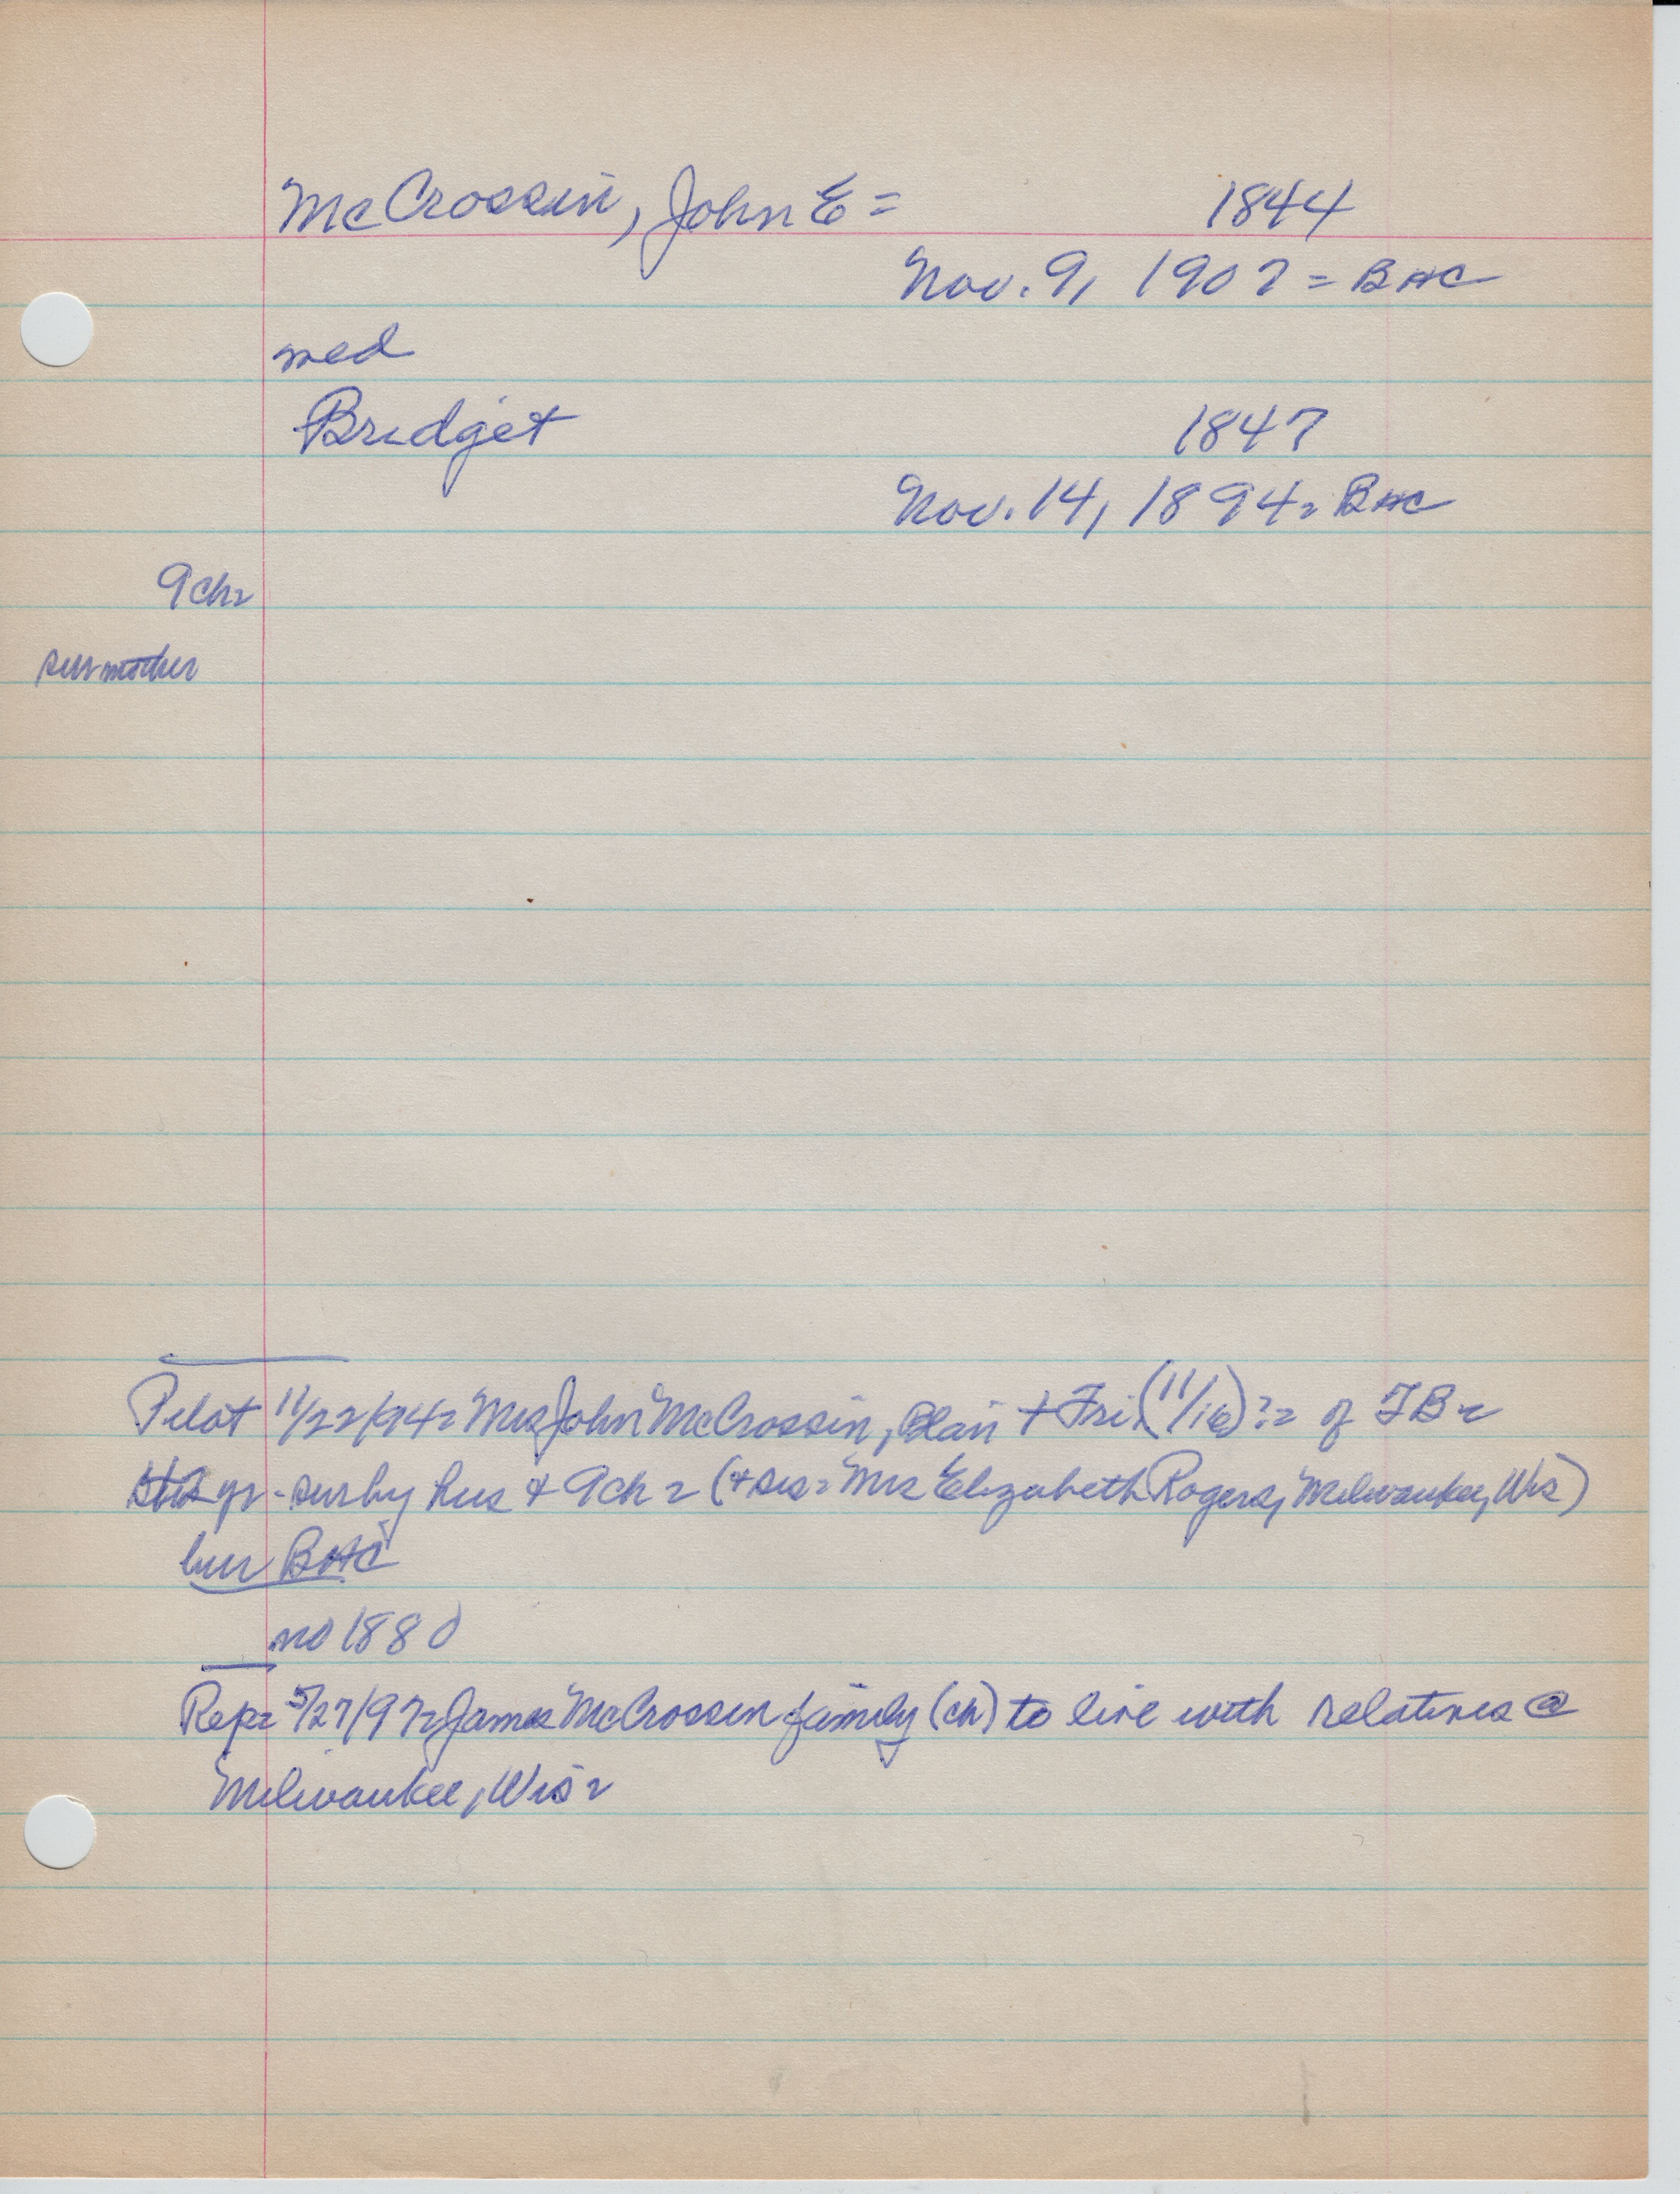 McCrossin, John E = 1844
Nov. 9, 1907 = BHC
med
Bridget 1847
Nov. 14, 1894 = BHC
9 ch=
sur mother
Pilot 11/22/94= Mrs John McCrossin, Blair + Fri (11/16)?= of TB=
yr - sur by hus + 9 ch = (+ sis = Mrs Elizabeth Rogers, Milwaukee, Wis)
bur BHC
no 1880
Rep= 5/27/97= James McCrossin family (ch) to live with relatives @
Milwaukee, Wis=